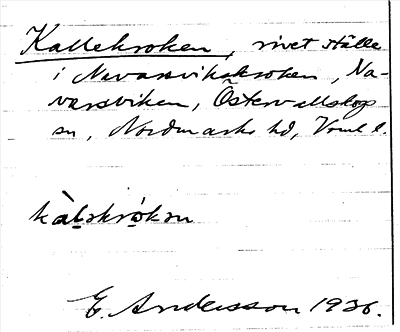 Kallekroken, rivet ställe
i Navarsvikskroken, Na-
varsviken, Östervallskogs
sn, Nordmarks hd, Vrml l.
kàlskrókən
E. Andersson 1936.